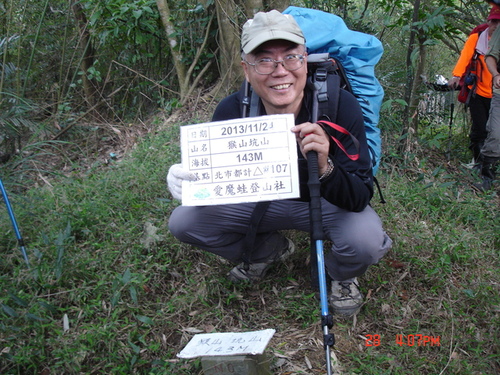 日期 2013/11/23
山名 猴山坑山
海拔 143M
基點 北市都計△#107
愛魔蛙登山社
猴山坑山
143M
4:07PM